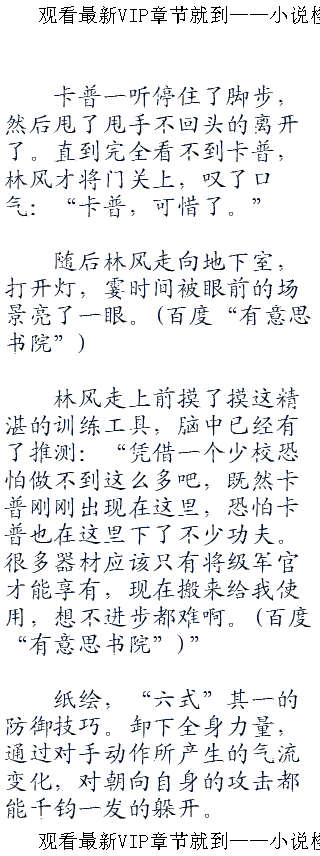 观看最新VIP章节就到——小说楼
卡普一听停住了脚步，
然后甩了甩手不回头的离开
了。直到完全看不到卡普，
林风才将门关上，叹了口
气：“卡普，可惜了。”
随后林风走向地下室，
打开灯，霎时间被眼前的场
景亮了一眼。(百度“有意思
书院”)
林风走上前摸了摸这精
湛的训练工具，脑中已经有
了推测：“凭借一个少校恐
怕做不到这么多吧，既然卡
普刚刚出现在这里，恐怕卡
普也在这里下了不少功夫。
很多器材应该只有将级军官
才能享有，现在搬来给我使
用，想不进步都难啊。(百度
“有意思书院”)”
纸绘，“六式”其一的
防御技巧。卸下全身力量，
通过对手动作所产生的气流
变化，对朝向自身的攻击都
能千钧一发的躲开。
观看最新VIP章节就到——小说